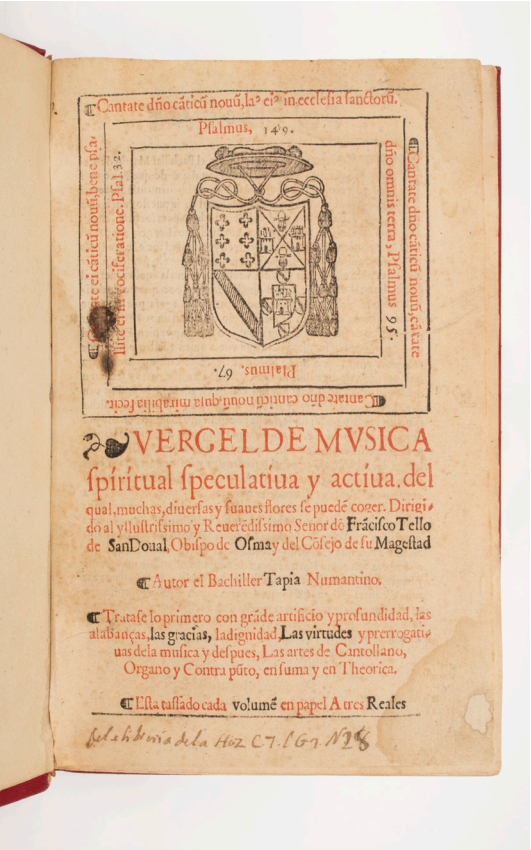 ¶Cantate dño cãticũ nouũ, laꝰ eiꝰ in ecclesia sanctorũ.
Psalmus, 149.
¶Cantate dno cãticũ nouũ, cãtate
dño omnis terra, Psalmus 95.
¶Cantate dño canticũ nouũ, quia mirabilia fecit.
Psalmus. 67.
ei cãticũ nouũ, bene psa-
llite ei in vociferatione. Psal. 32.
VERGEL DE MVSICA
spiritual speculatiua y actiua. del
qual, muchas, diuersas y suaues flores se puedẽ coger. Dirigi-
do al yllustrissimo y Reuerẽdissimo Señor dõ Frãcisco Tello
de SanDoual, Obispo de Osma y del Cõsejo de su Magestad
¶Autor el Bachiller Tapia Numantino.
¶Tratase lo primero con grãde artificio y profundidad, las
alabanças, las gracias, la dignidad, Las virtudes y prerrogati-
uas dela musica y despues, Las artes de Cantollano,
Organo y Contra pũto, en suma y en Theorica.
¶Esta tassado cada volumẽ en papel A tres Reales
dela Hoz